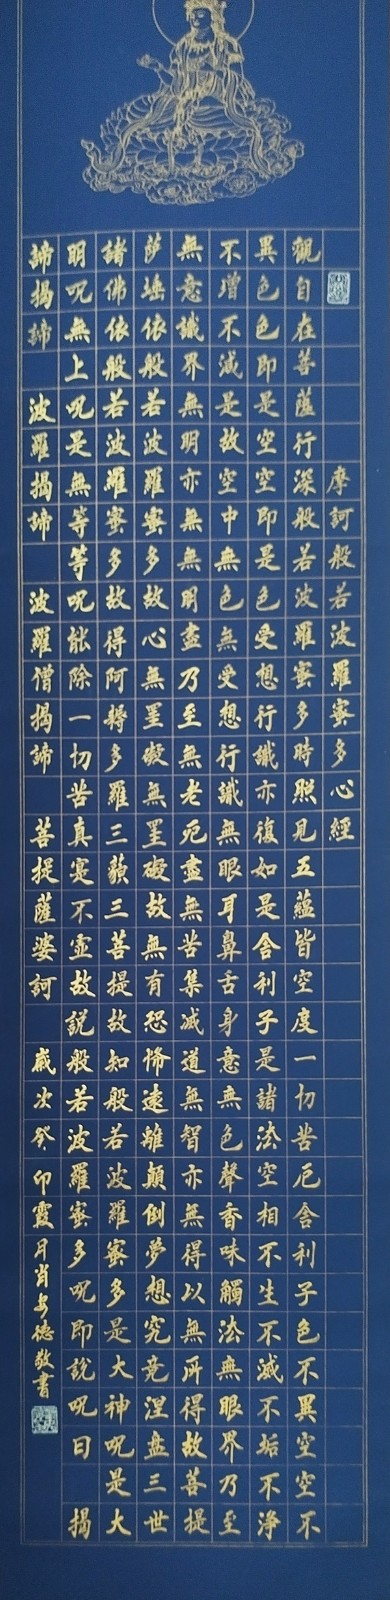 摩訶般若波羅蜜多心經
觀自在菩薩行深般若波羅蜜多時照見五蘊皆空度一切苦厄舍利子色不異空空不
異色色即是空空即是色受想行識亦復如是舍利子是諸法空相不生不滅不垢不淨
不增不減是故空中無色無受想行識無眼耳鼻舌身意無色聲香味觸法無眼界乃至
無意識界無明亦無無明盡乃至無老死盡無苦集滅道無智亦無得以無所得故菩提
薩埵依般若波羅蜜多故心無罣礙無罣礙故無有恐怖遠離顛倒夢想究竟涅盤三世
諸佛依般若波羅蜜多故得阿耨多羅三藐三菩提故知般若波羅蜜多是大神呪是大
明呪無上呪是無等等呪能除一切苦真寔不虛故說般若波羅蜜多呪即說呪曰 揭
諦揭諦 波羅揭諦 波羅僧揭諦 菩提薩婆訶 歲次癸卯霞月肖安德敬書